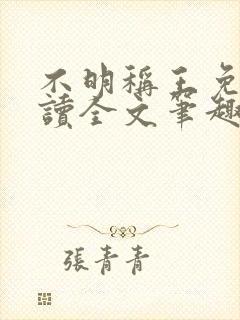 不明稱王免
讀全文筆趣
張青青